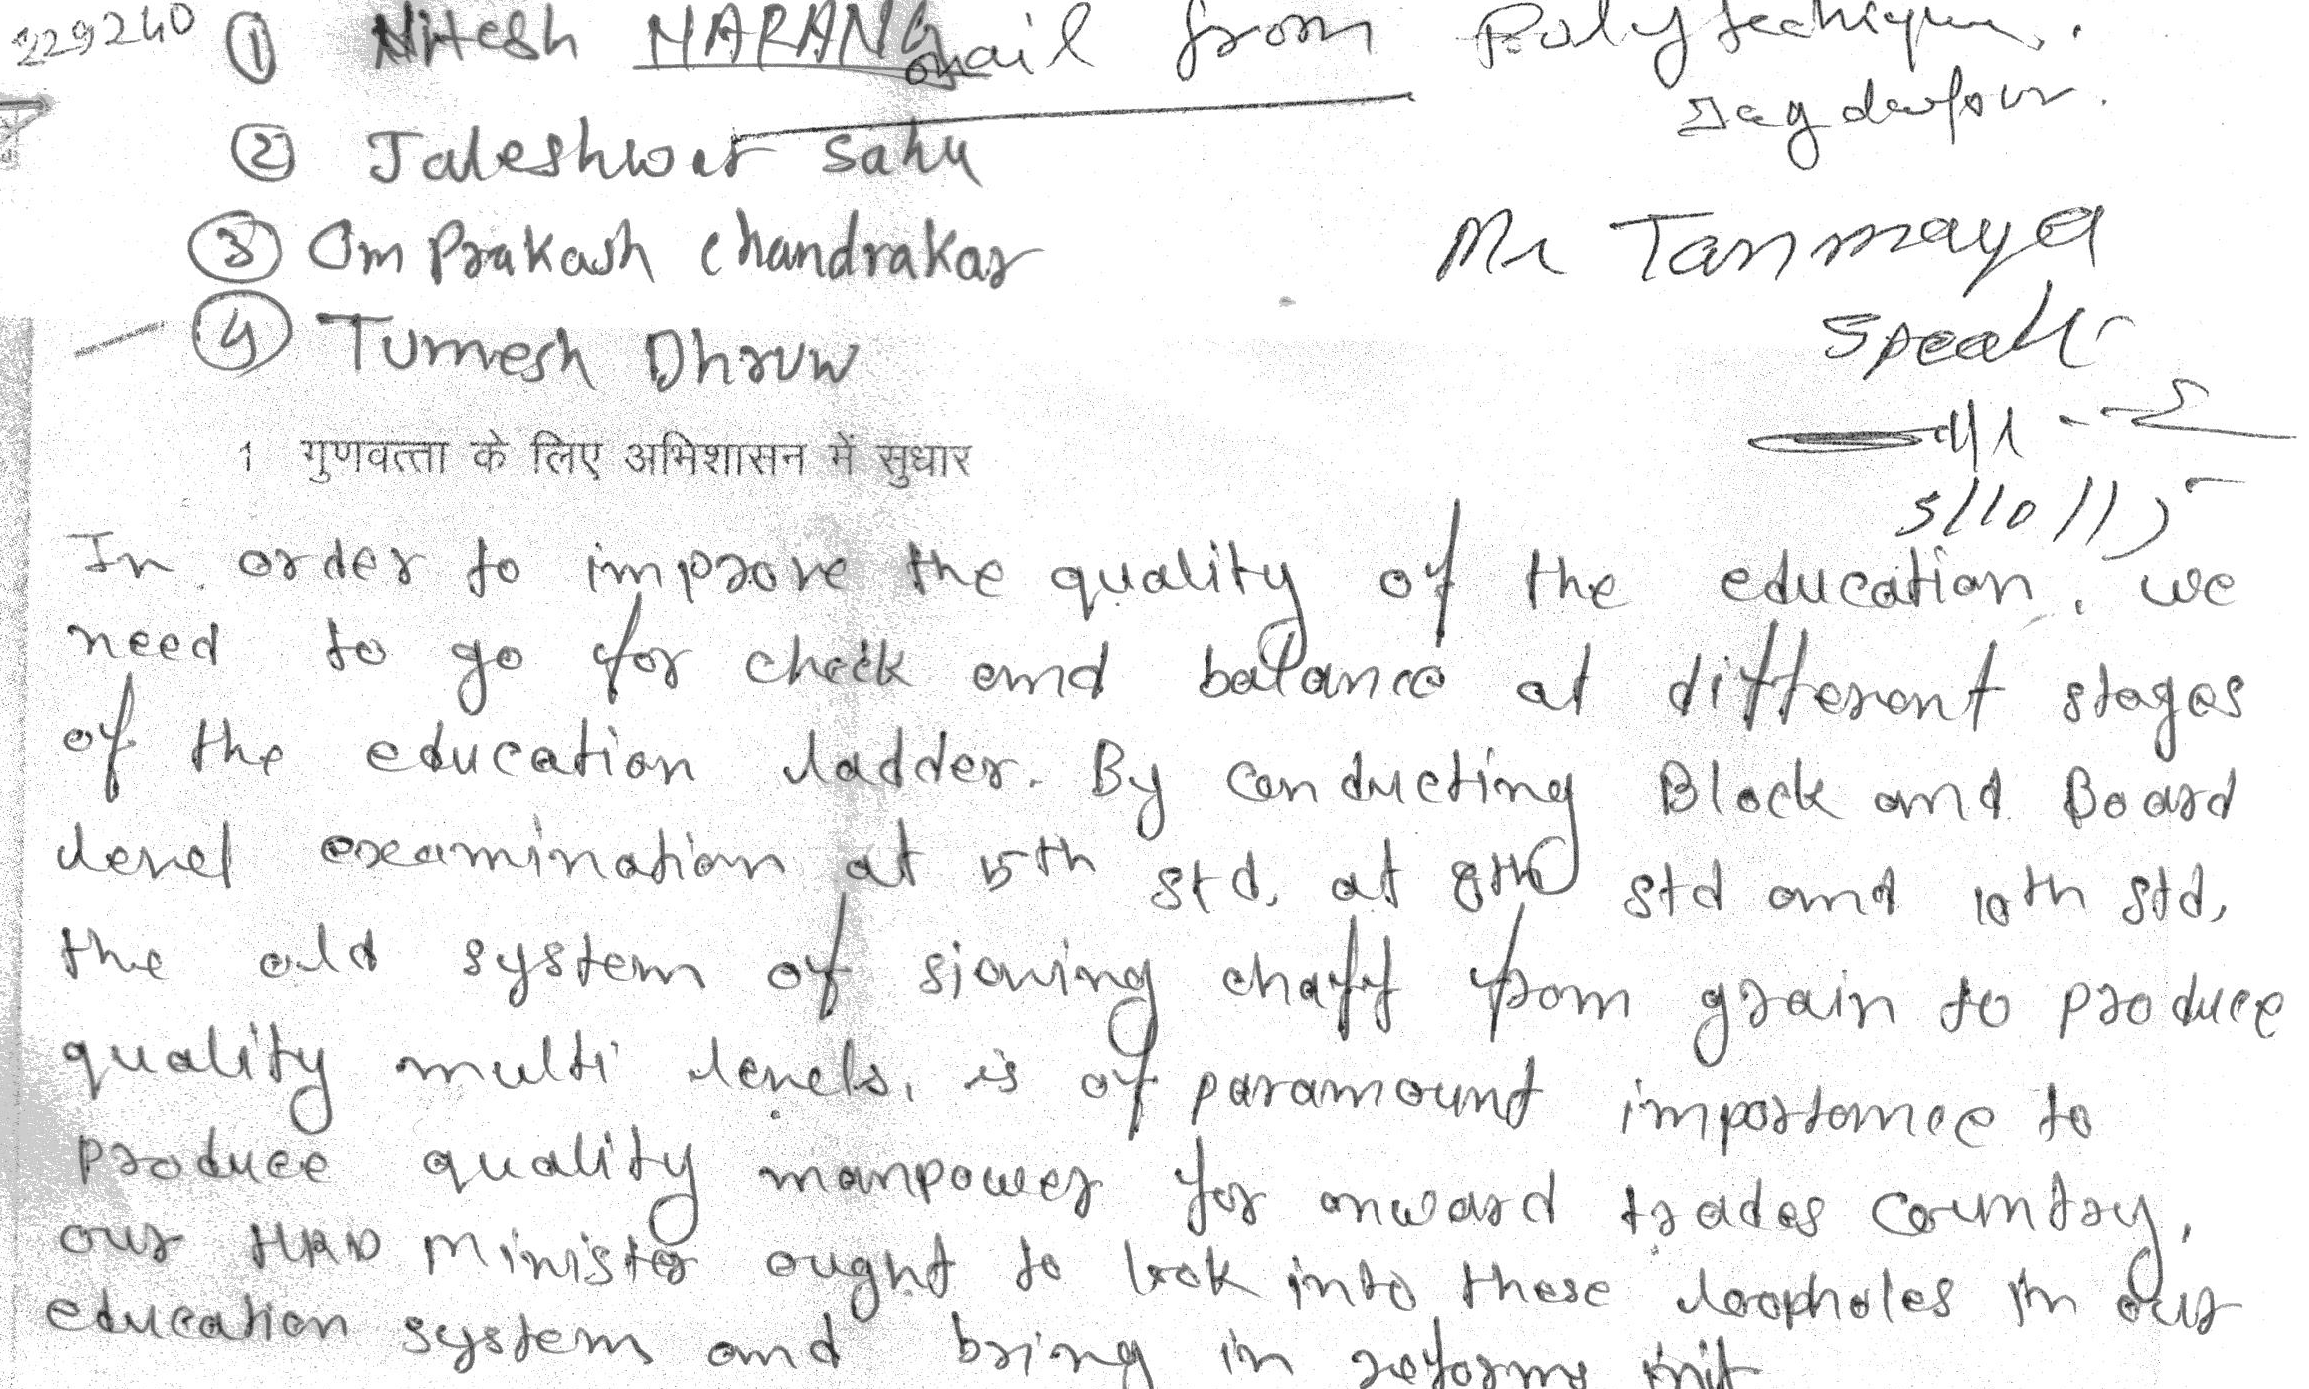 229240 ① Nitesh NARANG mail from Polytechique.
Jagdalpur.
② Jaleshwar Sahu
③ Om Prakash Chandrakar
Mr Tanmaya
④ Tumesh Dhruw
Speak
1 गुणवत्ता के लिए अभिशासन में सुधार
5/10/15
In order to improve the quality of the education, we
need to go for check and balance at different stages
of the education ladder. By conducting Block and Board
level examination at 5th std, at 8th std and 10th std,
the old system of sieving chaff from grain to produce
quality multi levels, is of paramount importance to
produce quality manpower for onward trades country,
our HRD Minister ought to look into these loopholes in our
education system and bring in reforms init